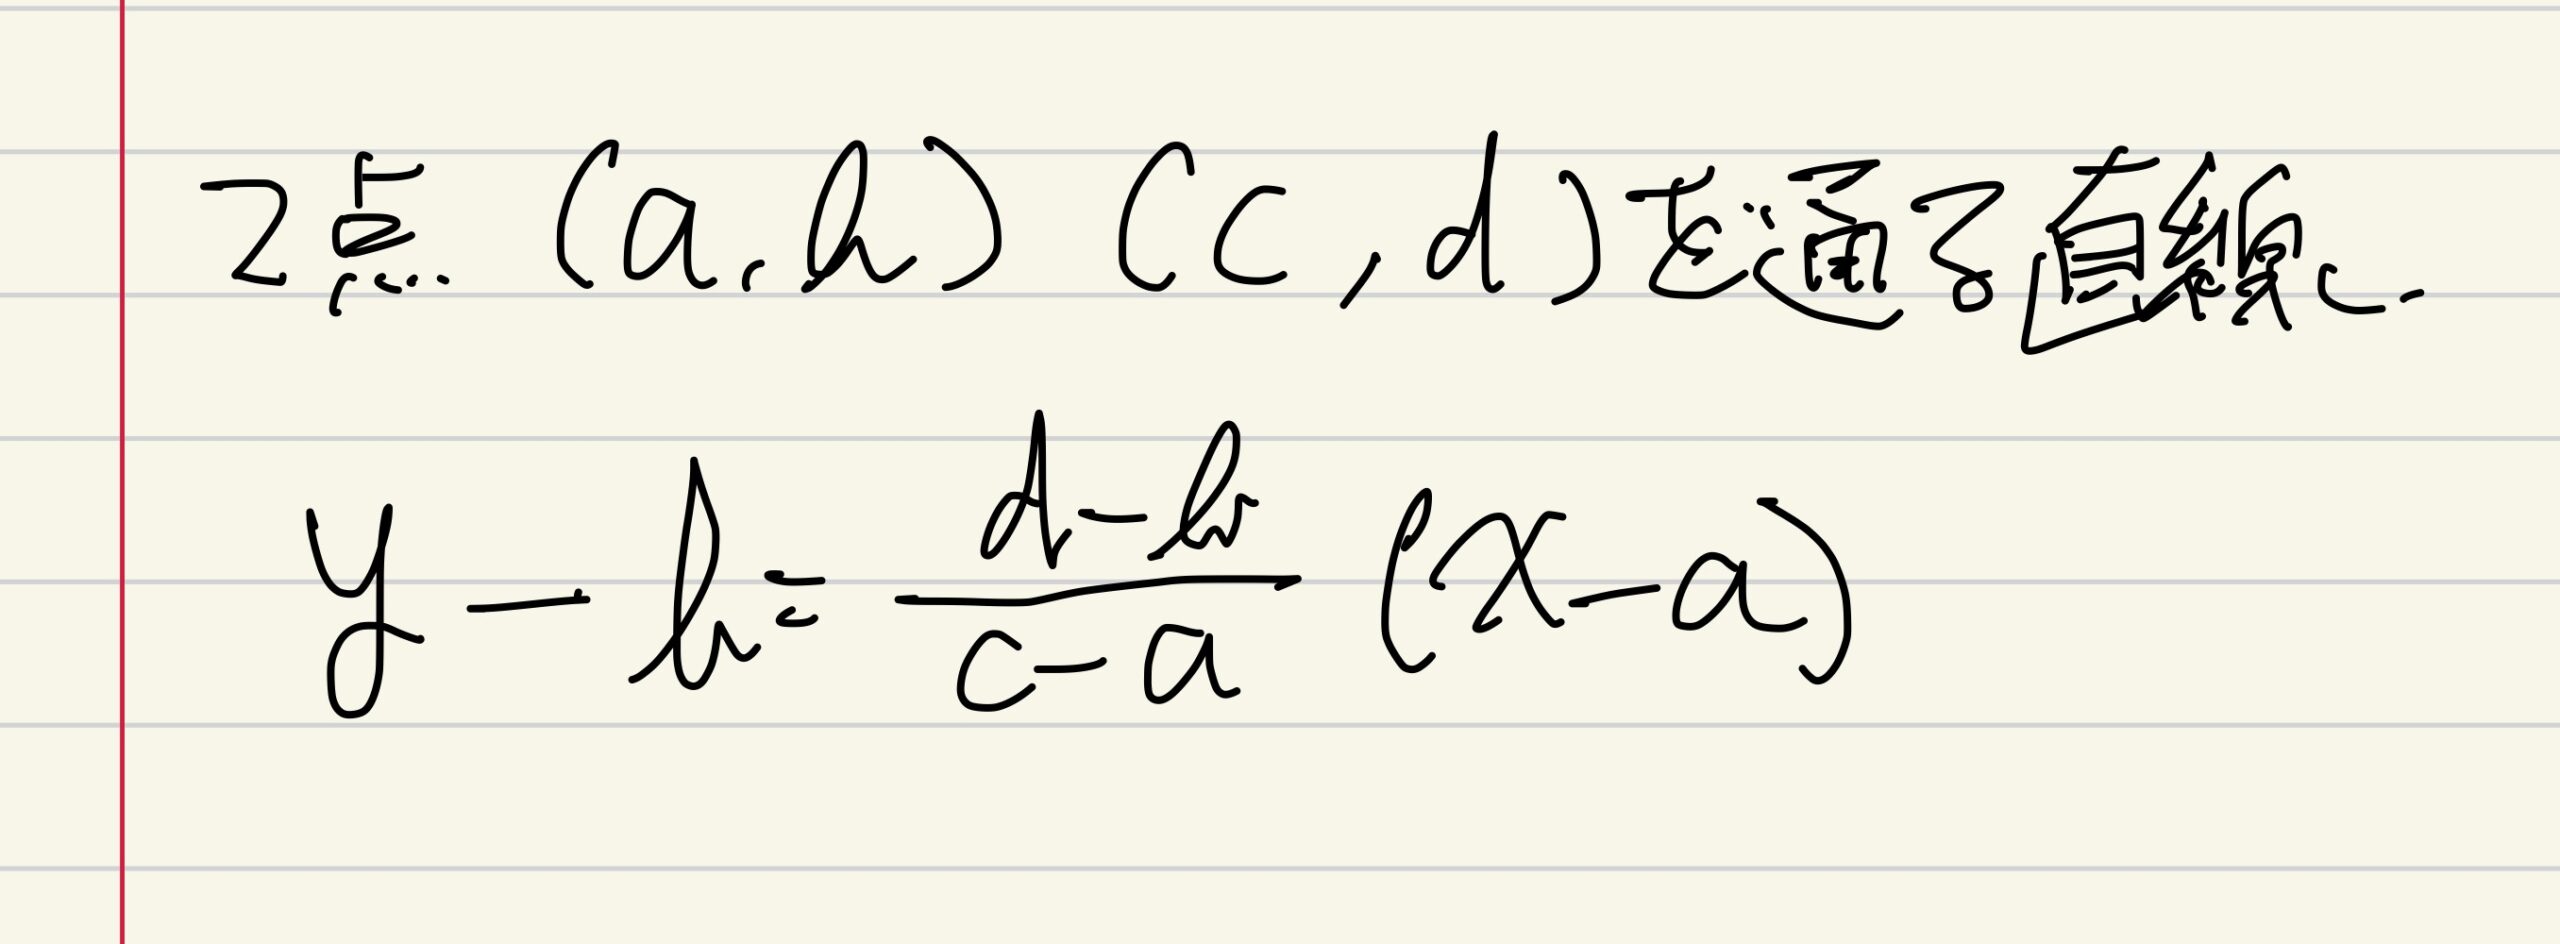 2点 (a, b) (c, d)を通る直線は
y - b = \frac{d-b}{c-a} (x-a)